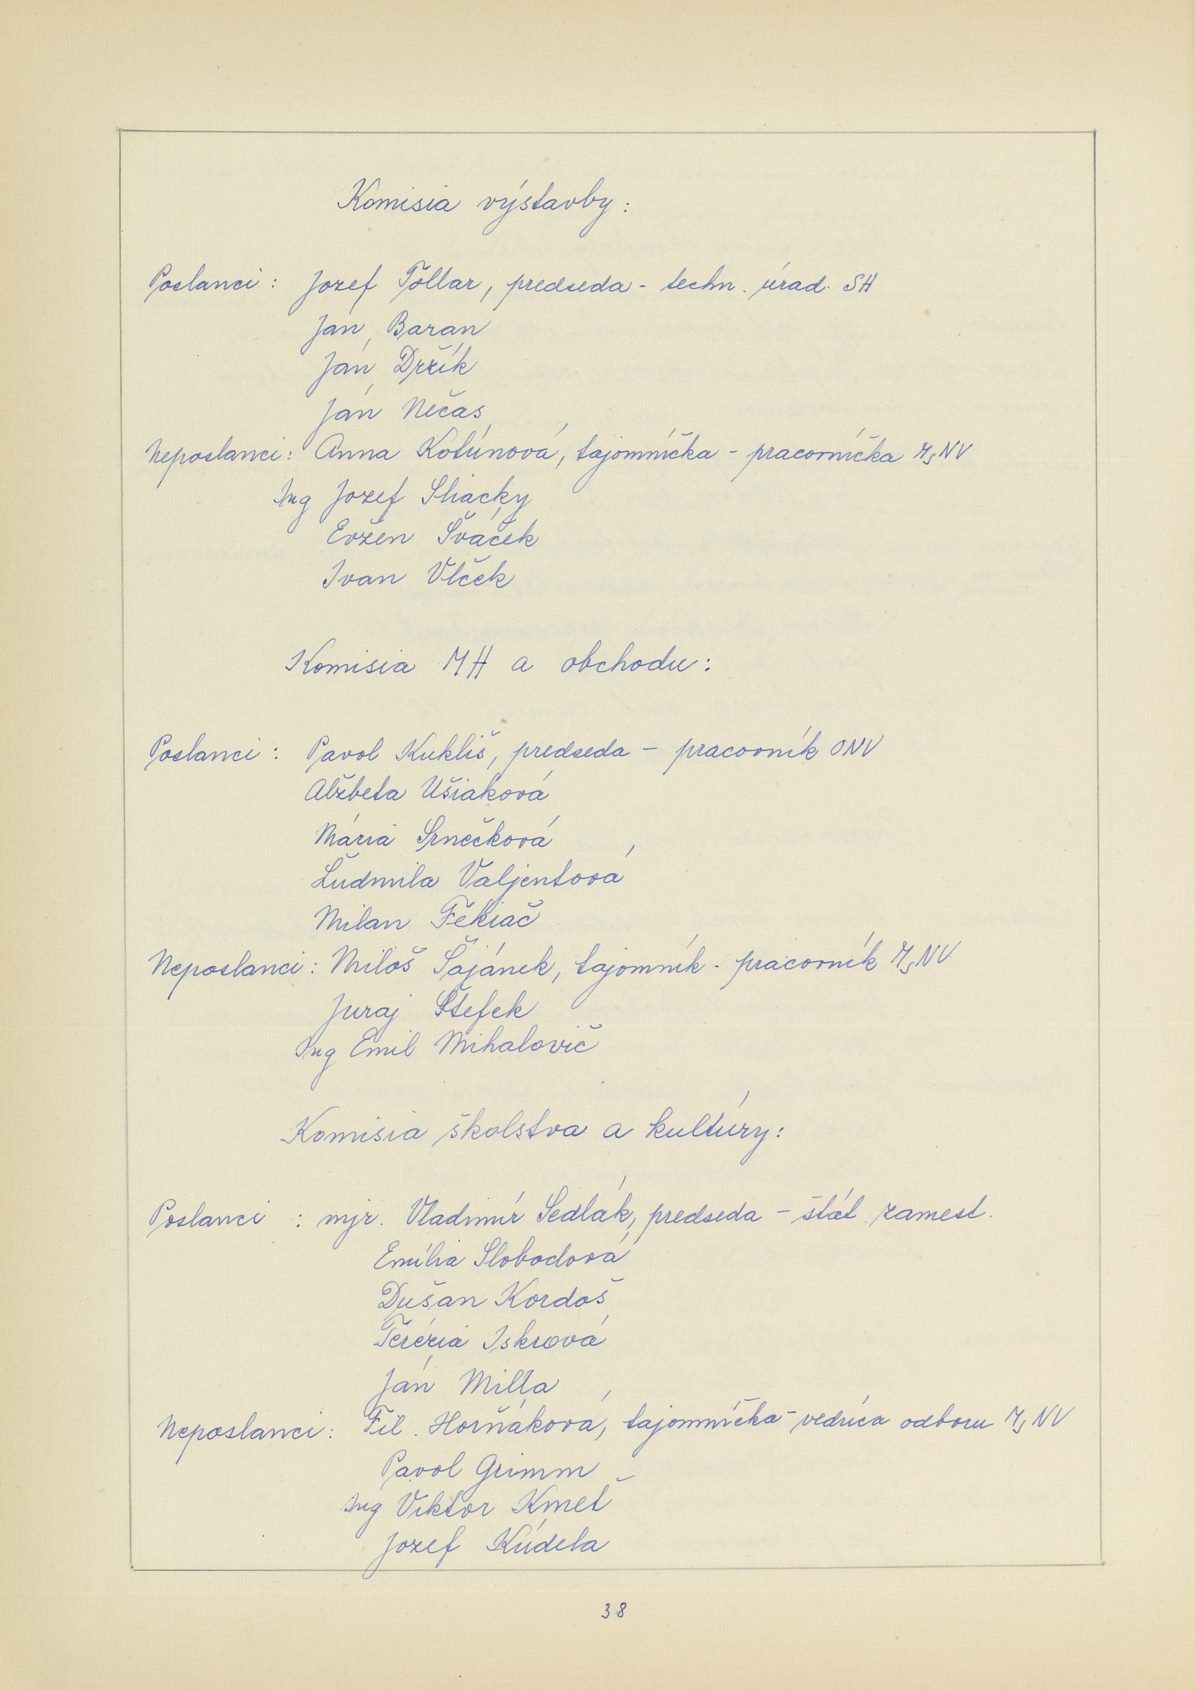 Komisia výstavby:
Poslanci: Jozef Töllar, predseda - techn. úrad. SH
Ján Baran
Ján Držík
Ján Nečas
Neposlanci: Anna Kotúnová, tajomníčka - pracovníčka MsNV
Ing Jozef Sliacky
Evžen Šváček
Ivan Vlček
Komisia MH a obchodu:
Poslanci: Pavol Kukliš, predseda - pracovník ONV
Alžbeta Ušiaková
Mária Srnečková
Ľudmila Valjentová
Milan Fekiač
Neposlanci: Miloš Šajánek, tajomník - pracovník MsNV
Juraj Štefek
Ing Emil Mihalovič
Komisia školstva a kultúry:
Poslanci : mjr. Vladimír Sedlák, predseda - štát. zamest.
Emília Slobodová
Dušan Kordoš
Terézia Iskrová
Ján Milla
Neposlanci: Fil. Horňáková, tajomníčka - vedúca odboru MsNV
Pavol Grimm
Ing Viktor Kmeť
Jozef Kúdela
38